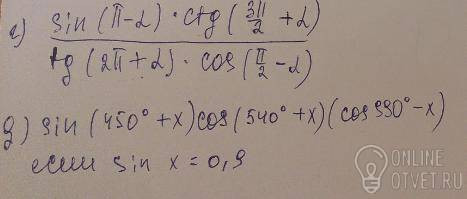 г) sin (π-α) · ctg (3π/2 + α)
tg (2π + α) · cos (π/2 - α)
д) sin (450° + x) cos (540° + x) (cos 990° - x)
если sin x = 0,9
ONLINE
OTVET.RU